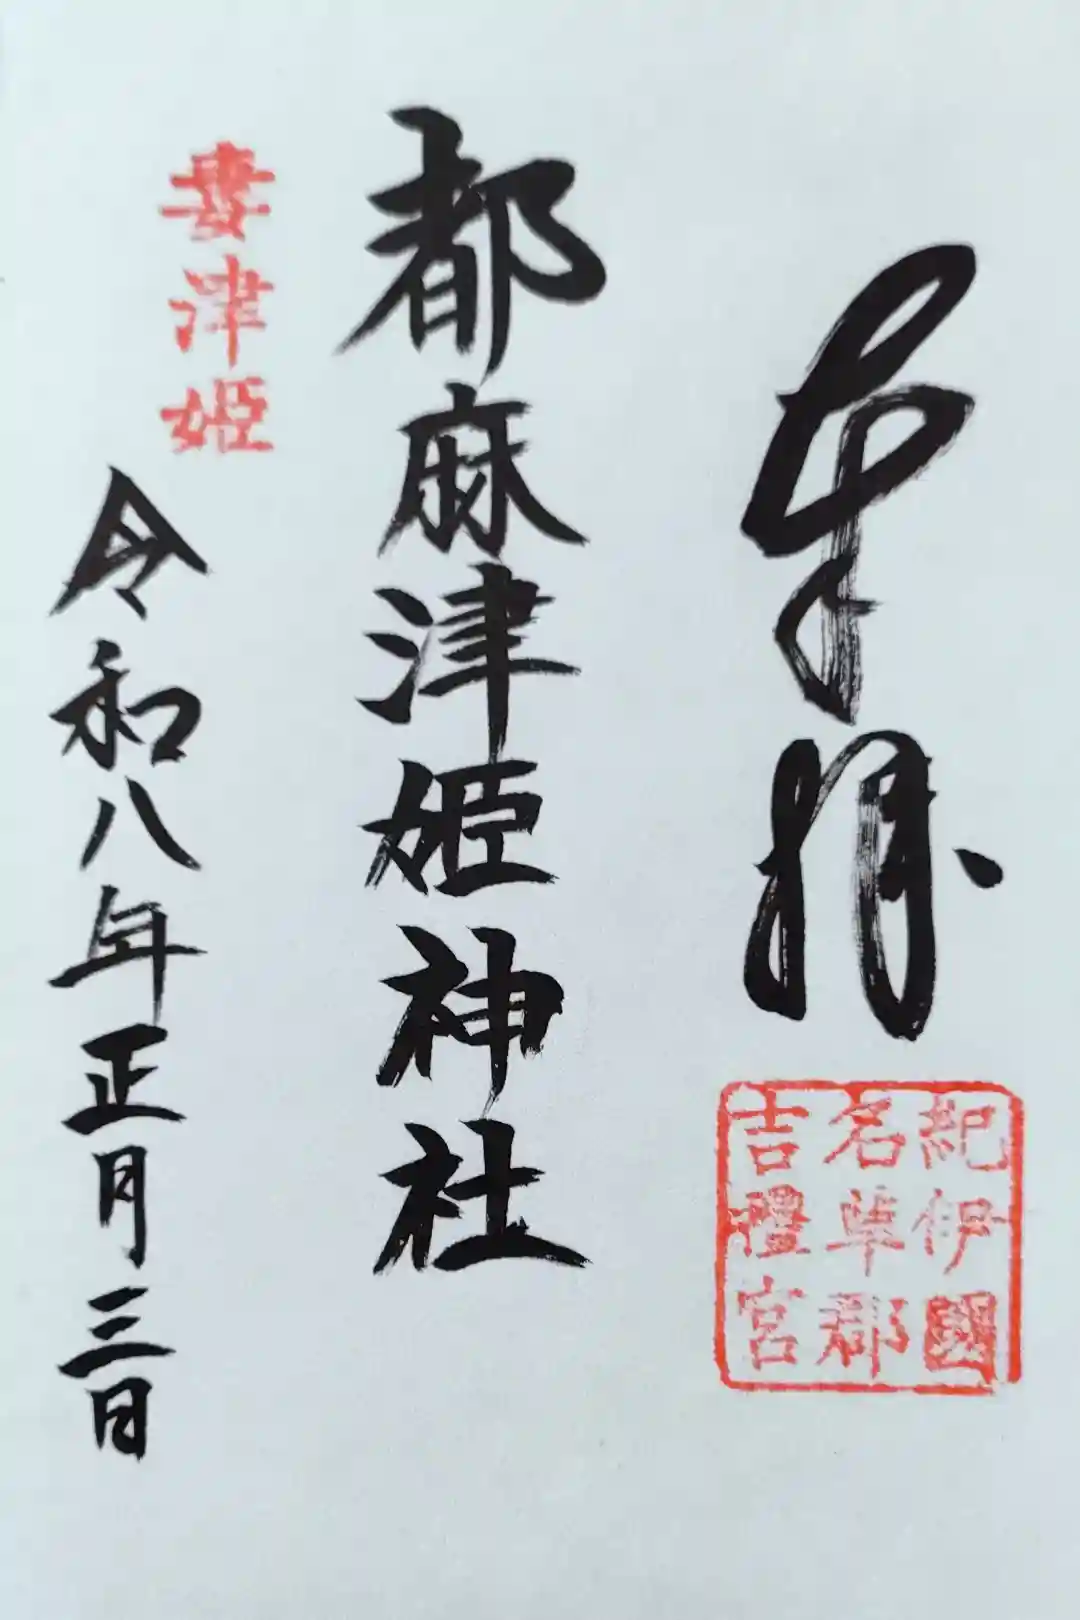 奉拝
紀伊國
名草郡
吉禮宮
都麻津姫神社
妻津姫
令和八年正月三日